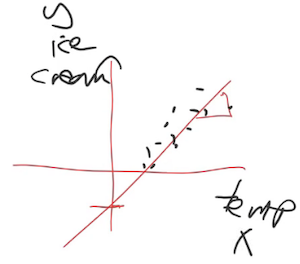 y
ice
cream
temp
X